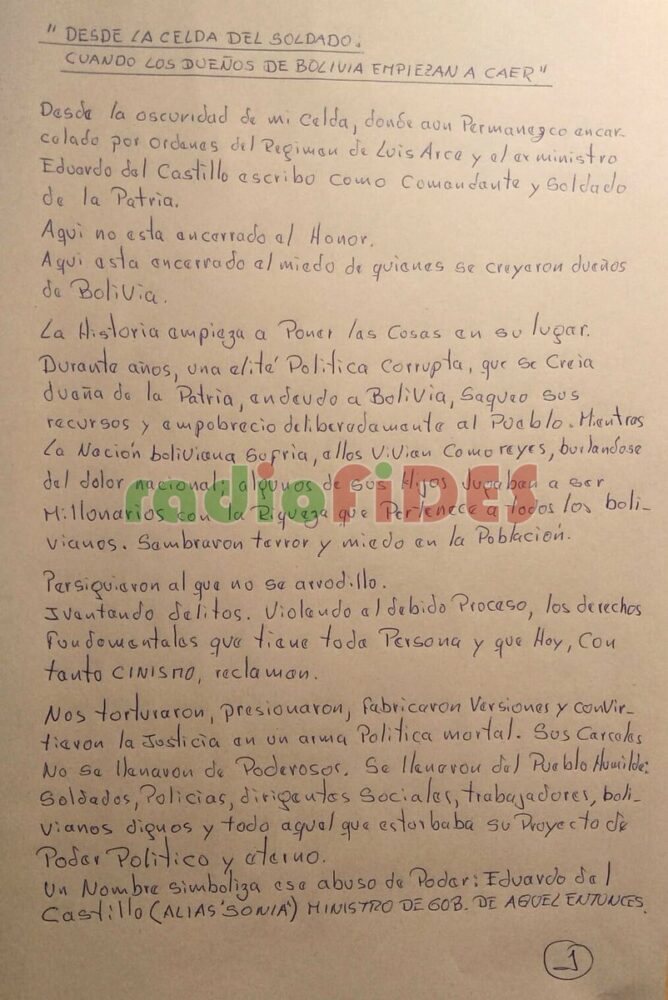 " DESDE LA CELDA DEL SOLDADO:
CUANDO LOS DUEÑOS DE BOLIVIA EMPIEZAN A CAER"
Desde la oscuridad de mi Celda, donde aun Permanezco encar-
celado por ordenes del Regimen de Luis Arce y el ex ministro
Eduardo del Castillo escribo como Comandante y Soldado
de la Patria.
Aqui no esta encerrado el Honor.
Aqui esta encerrado el miedo de quienes se creyeron dueños
de Bolivia.
La Historia empieza a Poner las Cosas en su lugar.
Durante años, una elité Politica Corrupta, que se Creia
dueña de la Patria, endeudo a Bolivia, Saqueo sus
recursos y empobrecio deliberadamente al Pueblo. Mientras
La Nación boliviana Sufria, ellos Vivian Como reyes, burlandose
del dolor nacional; algunos de sus Hijos Jugaban a ser
Millonarios con la Riqueza que Pertenece a todos los boli-
vianos. Sembraron terror y miedo en la Población.
radioFIDES
Persiguieron al que no se arrodillo.
Iventando delitos. Violando el debido Proceso, los derechos
Fundamentales que tiene toda Persona y que Hoy, Con
tanto CINISMO, reclaman.
Nos torturaron, presionaron, fabricaron Versiones y convir-
tieron la Justicia en un arma Politica mortal. Sus Carceles
No se llenaron de Poderosos. Se llenaron del Pueblo Humilde:
Soldados, Policias, dirigentes Sociales, trabajadores, boli-
vianos dignos y todo aquel que estorbaba su Proyecto de
Poder Politico y eterno.
Un Nombre simboliza ese abuso de Poder: Eduardo del
Castillo (ALIAS 'SONIA') MINISTRO DE GOB. DE AQUEL ENTONCES.
1